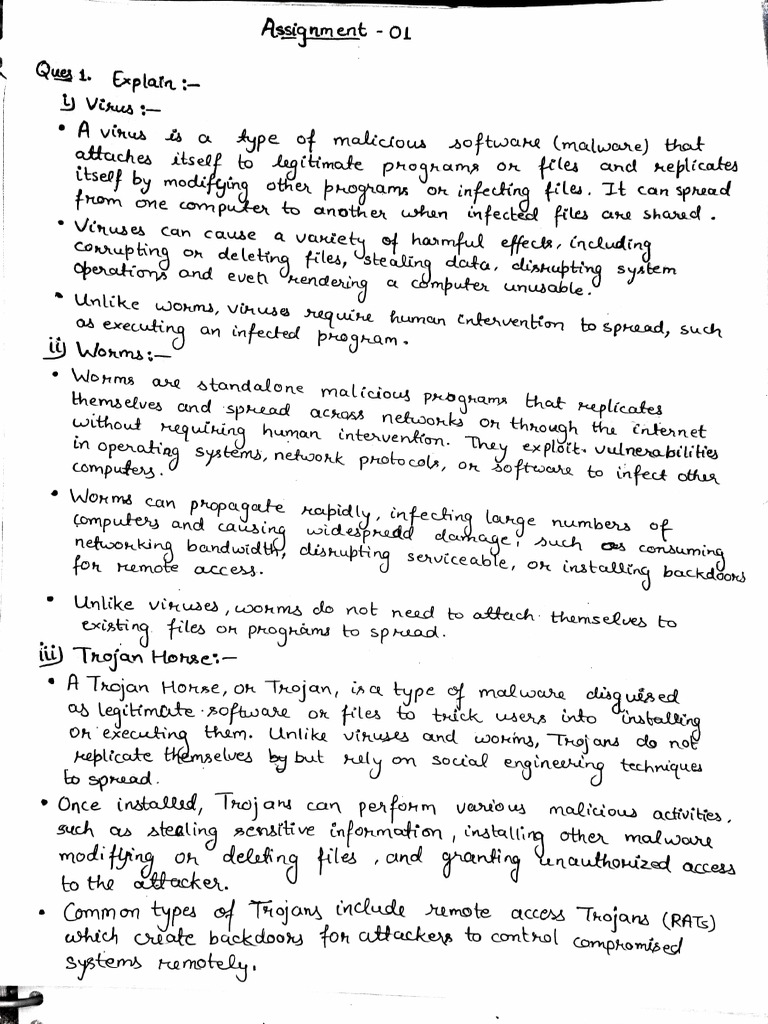 Assignment - 01
Ques 1. Explain :-
i) Virus :-
• A virus is a type of malicious software (malware) that
attaches itself to legitimate programs or files and replicates
itself by modifying other programs or infecting files. It can spread
from one computer to another when infected files are shared.
• Viruses can cause a variety of harmful effects, including
corrupting or deleting files, stealing data, disrupting system
operations and even rendering a computer unusable.
• Unlike worms, viruses require human intervention to spread, such
as executing an infected program.
ii) Worms :-
• Worms are standalone malicious programs that replicates
themselves and spread across networks or through the internet
without requiring human intervention. They exploit vulnerabilities
in operating systems, network protocols, or software to infect other
computers.
• Worms can propagate rapidly, infecting large numbers of
computers and causing widespread damage, such as consuming
networking bandwidth, disrupting serviceable, or installing backdoors
for remote access.
• Unlike viruses, worms do not need to attach themselves to
existing files or programs to spread.
iii) Trojan Horse :-
• A Trojan Horse, or Trojan, is a type of malware disguised
as legitimate software or files to trick users into installing
or executing them. Unlike viruses and worms, Trojans do not
replicate themselves by but rely on social engineering techniques
to spread.
• Once installed, Trojans can perform various malicious activities,
such as stealing sensitive information, installing other malware
modifying or deleting files, and granting unauthorized access
to the attacker.
• Common types of Trojans include remote access Trojans (RATs)
which create backdoors for attackers to control compromised
systems remotely.